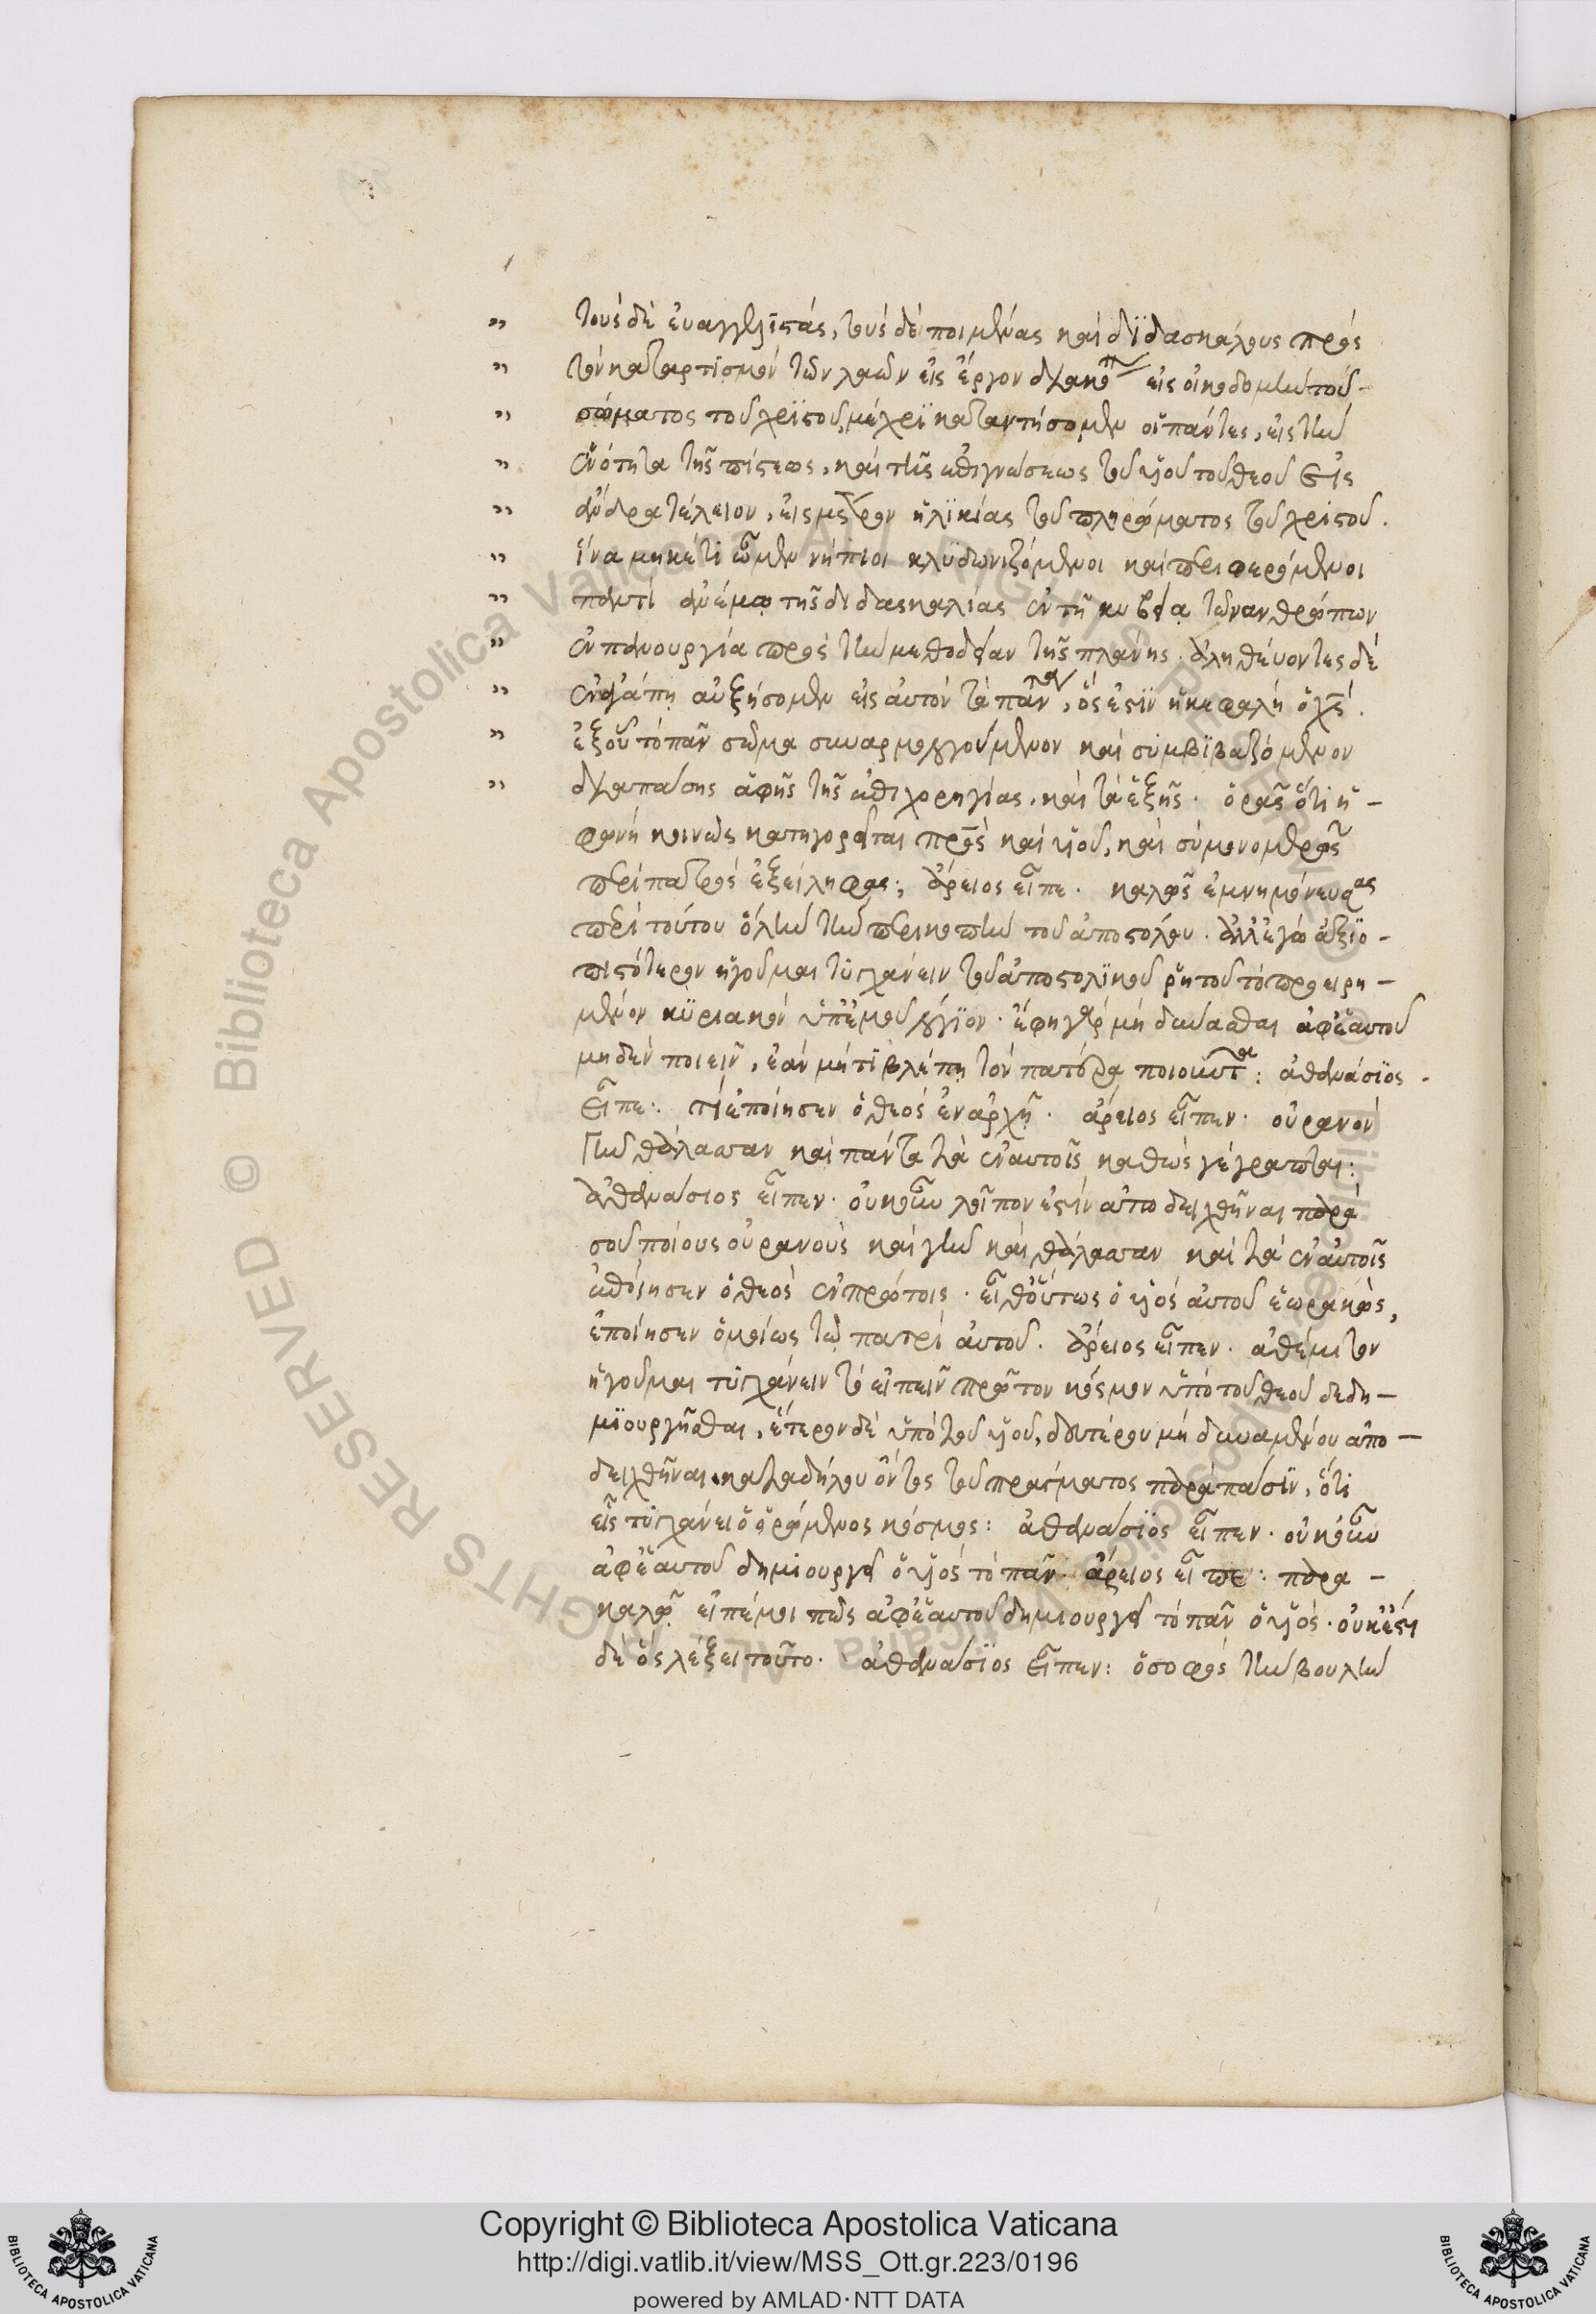 τοὺς δὲ ἐυαγγελϊστάς, τοὺς δὲ ποιμένας καὶ δϊδασκάλους πρὸς
τὸν καταρτϊσμὸν τῶν λαῶν εἰς ἔργον διακον εἰς οἰκοδομὴν τοῦ
σώματος τοῦ χρϊστοῦ, μέχρϊ καταντήσομεν οἱ πάντες, εἰς τὴν
ἑνότητα τῆς πίστεως, καὶ τῆς ἐπιγνώσεως τοῦ υἱοῦ τοῦ θεοῦ εἰς
ἄνδρα τέλειον, εἰς μέτρον ἡλϊκίας τοῦ πληρώματος τοῦ χριστοῦ.
ἵνα μηκέτι ὦμεν νήπιοι κλϋδωνιζόμενοι καὶ περιφερόμενοι
παντὶ ἀνέμῳ τῆς διδασκαλίας ἐν τῇ κυβείᾳ τῶν ανθρώπων
ἐν πανουργίᾳ πρὸς τὴν μεθοδείαν τῆς πλάνης. ἀληθέυοντες δὲ
ἐν ἀγάπῃ αὐξήσομεν εἰς αὐτὸν τὰ πάντα, ὅς ἐστϊν ἡ κεφαλὴ ὁ χς.
ἐξ οὗ τὸ πᾶν σῶμα συναρμολογούμενον καὶ σϋμβϊβαζόμενον
διὰ πάσης ἁφῆς τῆς ἐπιχορηγίας, καὶ τὰ ἑξῆς. ὁρᾷς ὅτι ἡ -
φωνὴ κοινῶς κατηγορεῖται πρς καὶ υἱοῦ, καὶ σὺ μονομερῶς
περὶ πατρὸς ἐξείληφας; ἄρειος εἶπε. καλῶς ἐμνημόνευσας
περὶ τούτου ὅλην τὴν περικοπὴν τοῦ ἀποστόλου. ἀλλ' ἐγὼ ἀξϊο -
πιστότερον ἡγοῦμαι τϋγχάνειν τοῦ ἀποστολϊκοῦ ῥητοῦ τὸ προειρη -
μένον κϋριακὸν ὑπ' ἐμοῦ λόγϊον. ἔφη γὰρ μὴ δύνασθαι ἀφ' ἑαυτοῦ
μηδὲν ποιεῖν, ἐὰν μή τϊ βλέπῃ τὸν πατέρα ποιοῦντα: ἀθανάσϊος
εἶπε: τί ἐποίησεν ὁ θεὸς ἐν ἀρχῇ. ἄρειος εἶπεν. οὐρανὸν
γῆν θάλασσαν καὶ πάντα τὰ ἐν αὐτοῖς καθὼς γέγραπται:
ἀθανάσιος εἶπεν. οὐκοῦν λοῖπον ἐστὶν ἀποδειχθῆναι παρὰ
σοῦ ποίους οὐρανοὺς καὶ γῆν καὶ θάλασσαν καὶ τὰ ἐν αὐτοῖς
ἐποίησεν ὁ θεὸς ἐν πρώτοις. εἶθ' οὕτως ὁ υἱὸς αὐτοῦ ἑωρακὼς,
ἐποίησεν ὁμοίως τῷ πατρὶ αὐτοῦ. ἄρειος εἶπεν. ἀθέμιτον
ἡγοῦμαι τϋγχάνειν τὸ εἰπεῖν πρῶτον κόσμον ὑπὸ τοῦ θεοῦ δεδη -
μϊουργῆσθαι, ἕτερον δὲ ὑπὸ τοῦ υἱοῦ, δευτέρου μὴ δυναμένου ἀπο -
δειχθῆναι. καταδήλου ὄντος τοῦ πράγματος παρὰ πάσϊν, ὅτι
εἷς τϋγχάνει ὁ ὁρώμενος κόσμος: ἀθανάσϊος εἶπεν. οὐκοῦν
ἀφ' ἑαυτοῦ δημιουργεῖ ὁ υἱὸς τὸ πᾶν. ἄρειος εἶπε: παρα -
καλῶ εἰπέ μοι πῶς ἀφ' ἑαυτοῦ δημιουργεῖ τὸ πᾶν ὁ υἱὸς. οὐκ ἔστι
δὲ ὃς λέξει τοῦτο. ἀθανάσϊος εἶπεν: ὁ σοφὸς τὴν βουλὴν
Copyright © Biblioteca Apostolica Vaticana
http://digi.vatlib.it/view/MSS_Ott.gr.223/0196
powered by AMLAD·NTT DATA